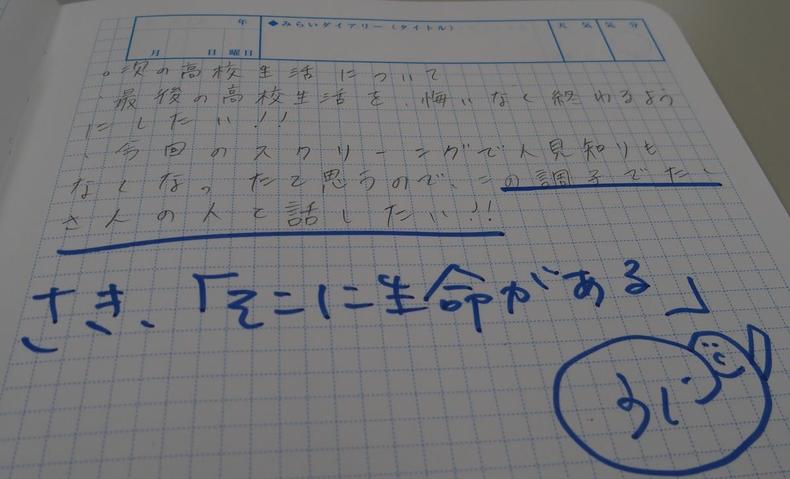 年
◆みらいダイアリー(タイトル)
天気 気分
月 日 曜日
。次の高校生活について
・最後の高校生活を、悔いなく終わるよう
にしたい!!
・今回のスクリーニングで人見知りも
なくなったと思うので、この調子でたく
さんの人と話したい!!
さき、「そこに生命がある」